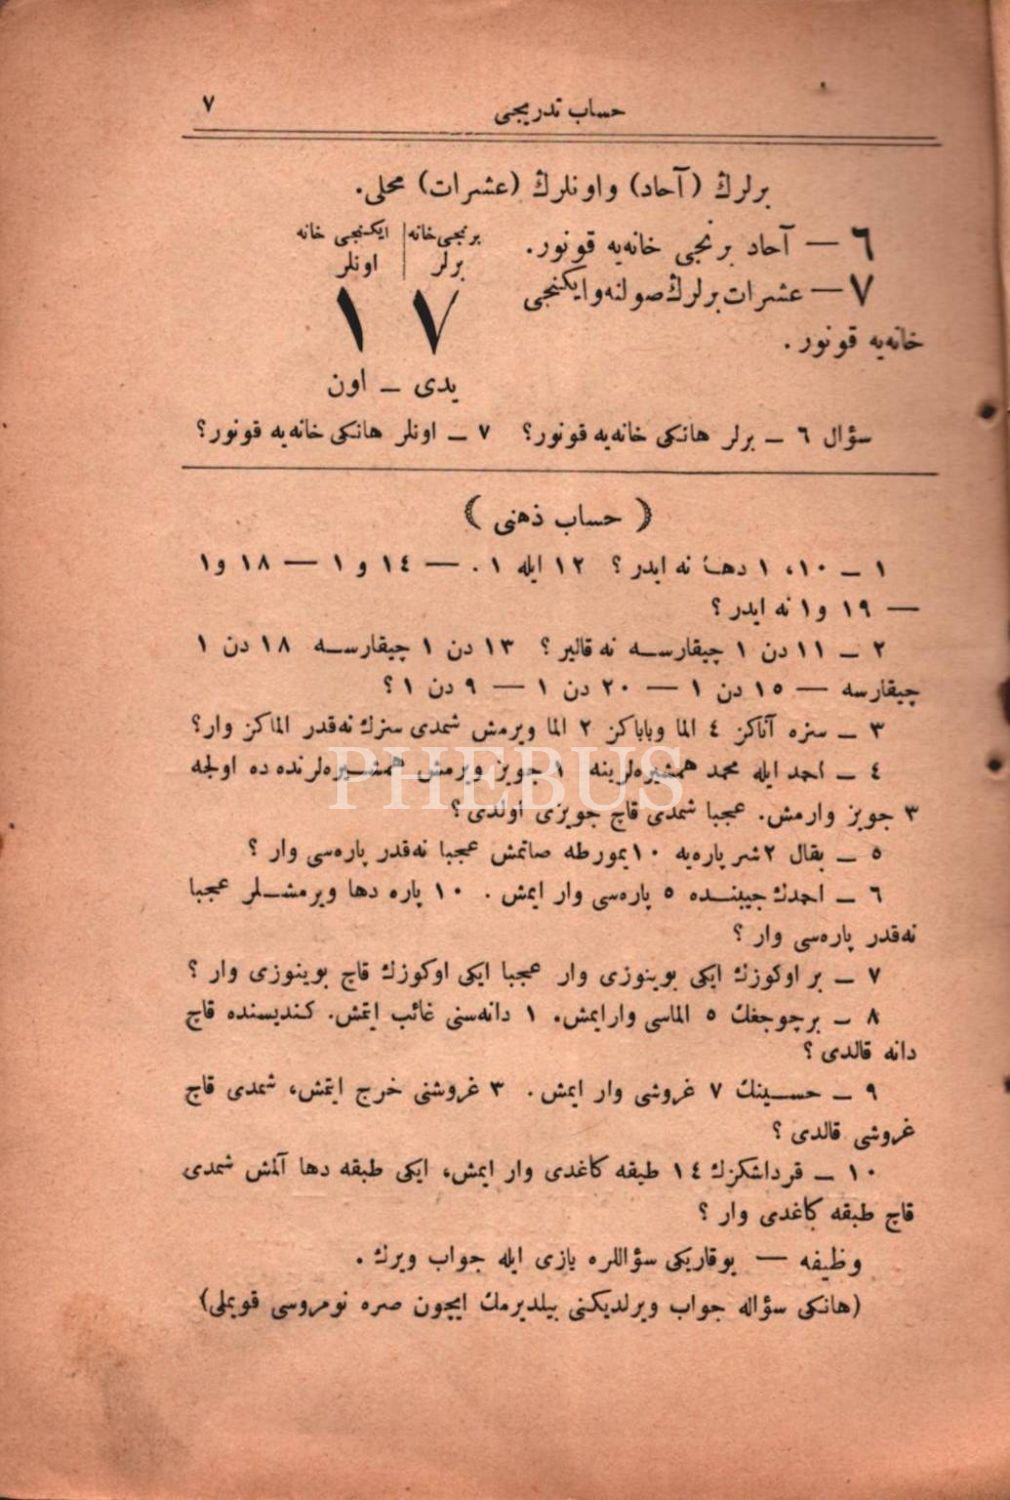 حساب تدریجی ٧
برلرك (آحاد) و اونلرك (عشرات) محلی.
٦ — آحاد برنجی خانه‌یه قونور.
٧ — عشرات برلرك صولنه و ایكنجی
خانه‌یه قونور.
برنجی خانه ایكنجی خانه
برلر اونلر
١٧
یدی ـ اون
سؤال ٦ ـ برلر هانكی خانه‌یه قونور؟ ٧ ـ اونلر هانكی خانه‌یه قونور؟
( حساب ذهنی )
١ ـ ١٠، ١ دها نه ایدر ؟ ١٢ ایله ١ . — ١٤ و ١ — ١٨ و١
— ١٩ و١ نه ایدر ؟
٢ ـ ١١ دن ١ چیقارسه نه قالیر ؟ ١٣ دن ١ چیقارسه ١٨ دن ١
چیقارسه — ١٥ دن ١ — ٢٠ دن ١ — ٩ دن ١ ؟
٣ ـ سزه آناكز ٤ الما وباباكز ٢ الما ویرمش شمدی سزك نه‌قدر الماكز وار؟
٤ ـ احمد ایله محمد همشیره‌لرینه ١ جویز ویرمش همشیره‌لرنده ده اولجه
٣ جویز وارمش. عجبا شمدی قاچ جویزی اولدی ؟
٥ ـ بقال ٢شر پاره‌یه ١٠ یمورطه صاتمش عجبا نه‌قدر پاره‌سی وار ؟
٦ ـ احمدك جیبنده ٥ پاره‌سی وار ایمش . ١٠ پاره دها ویرمشلر عجبا
نه‌قدر پاره‌سی وار ؟
٧ ـ بر اوكوزك ایكی بوینوزی وار عجبا ایكی اوكوزك قاچ بوینوزی وار ؟
٨ ـ برچوجغك ٥ الماسی وارایمش. ١ دانه‌سنی غائب ایتمش. كندیسنده قاچ
دانه قالدی ؟
٩ ـ حسینك ٧ غروشی وار ایمش. ٣ غروشنی خرج ایتمش، شمدی قاچ
غروشی قالدی ؟
١٠ ـ قرداشكزك ١٤ طبقه كاغدی وار ایمش، ایكی طبقه دها آلمش شمدی
قاچ طبقه كاغدی وار ؟
وظیفه — یوقاریكی سؤاللره یازی ایله جواب ویرك .
(هانكی سؤاله جواب ویرلدیكنی بیلدیرمك ایچون صره نومروسی قویملی)
PHEBUS